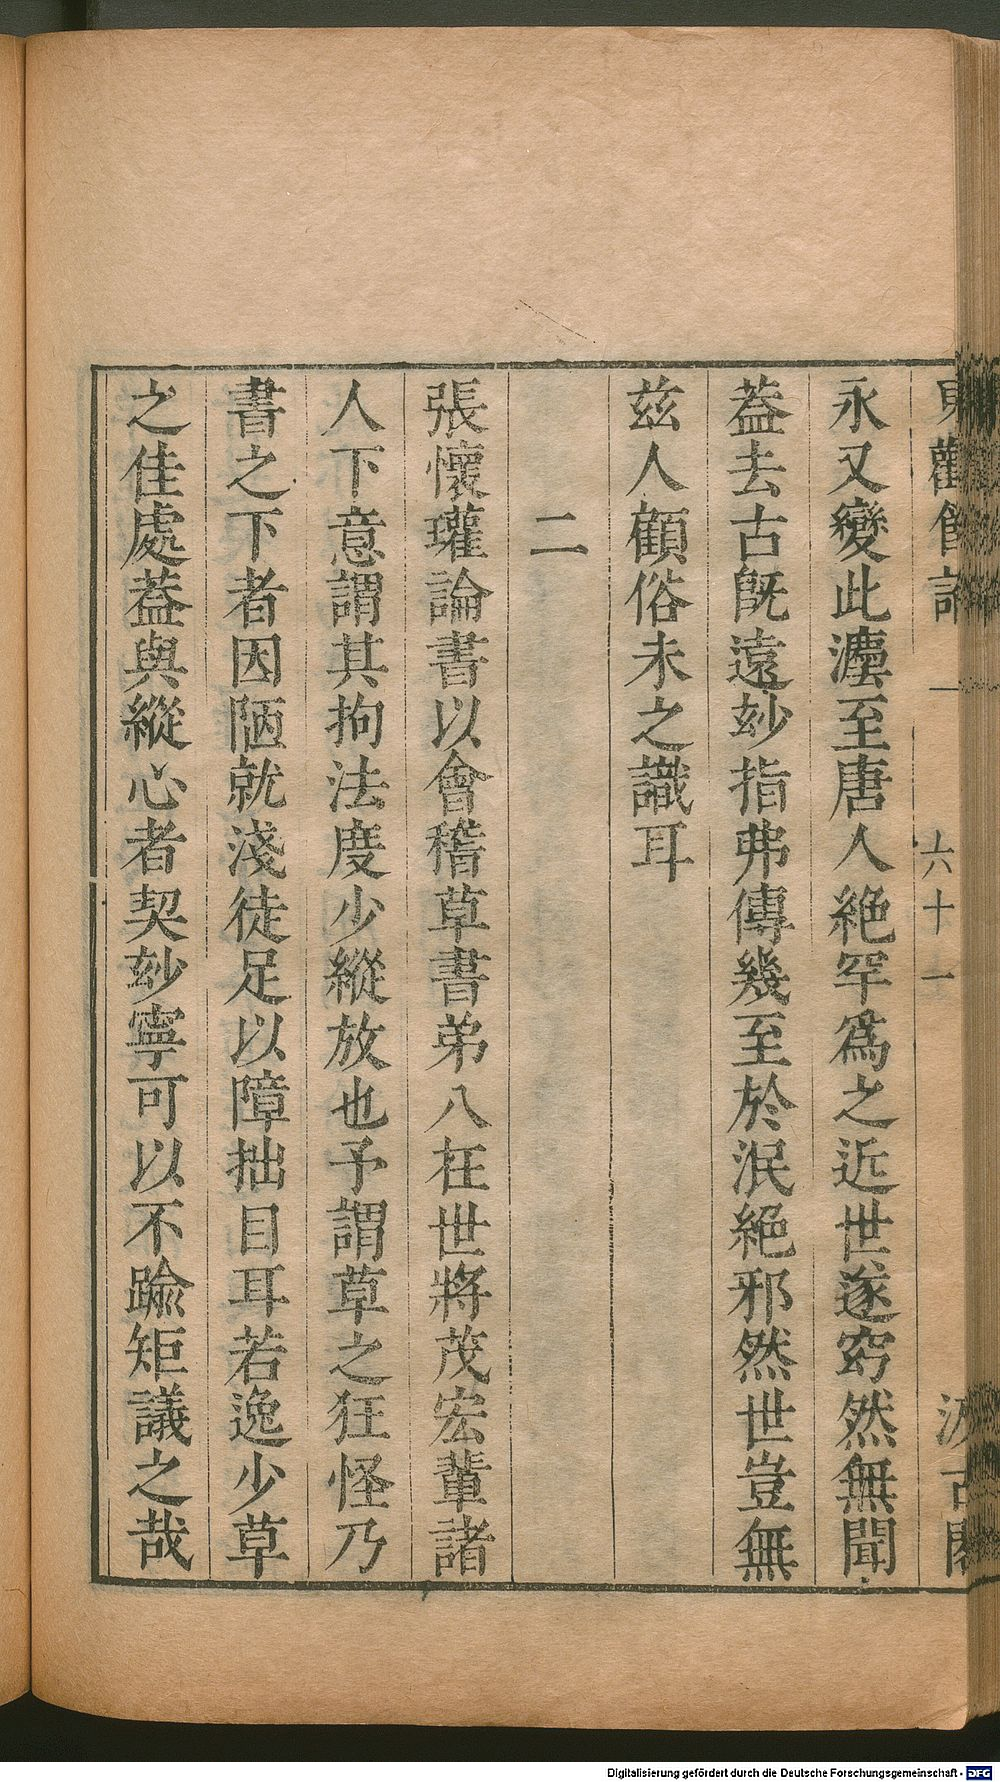 東觀餘論 一 六十一 汲古閣
永又變此灋至唐人絕罕爲之近世遂窈然無聞
葢去古旣遠玅指弗傳幾至於泯絕邪然世豈無
兹人顧俗未之識耳
二
張懷瓘論書以會稽草書弟八在世將茂宏輩諸
人下意謂其拘法度少縱放也予謂草之狂怪乃
書之下者因陋就淺徒足以障拙目耳若逸少草
之佳處葢與縱心者契玅寧可以不踰矩議之哉
Digitalisierung gefördert durch die Deutsche Forschungsgemeinschaft - DFG